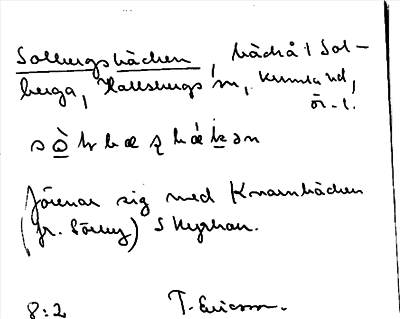 Solbergsbäcken, bäckå i Sol-
berga, Hallsbergs sn, Kumla hd,
Ör. l.
Förenar sig med Kvarnbäcken
(fr. Sörby) S kyrkan.
8:2 T. Ericsson.